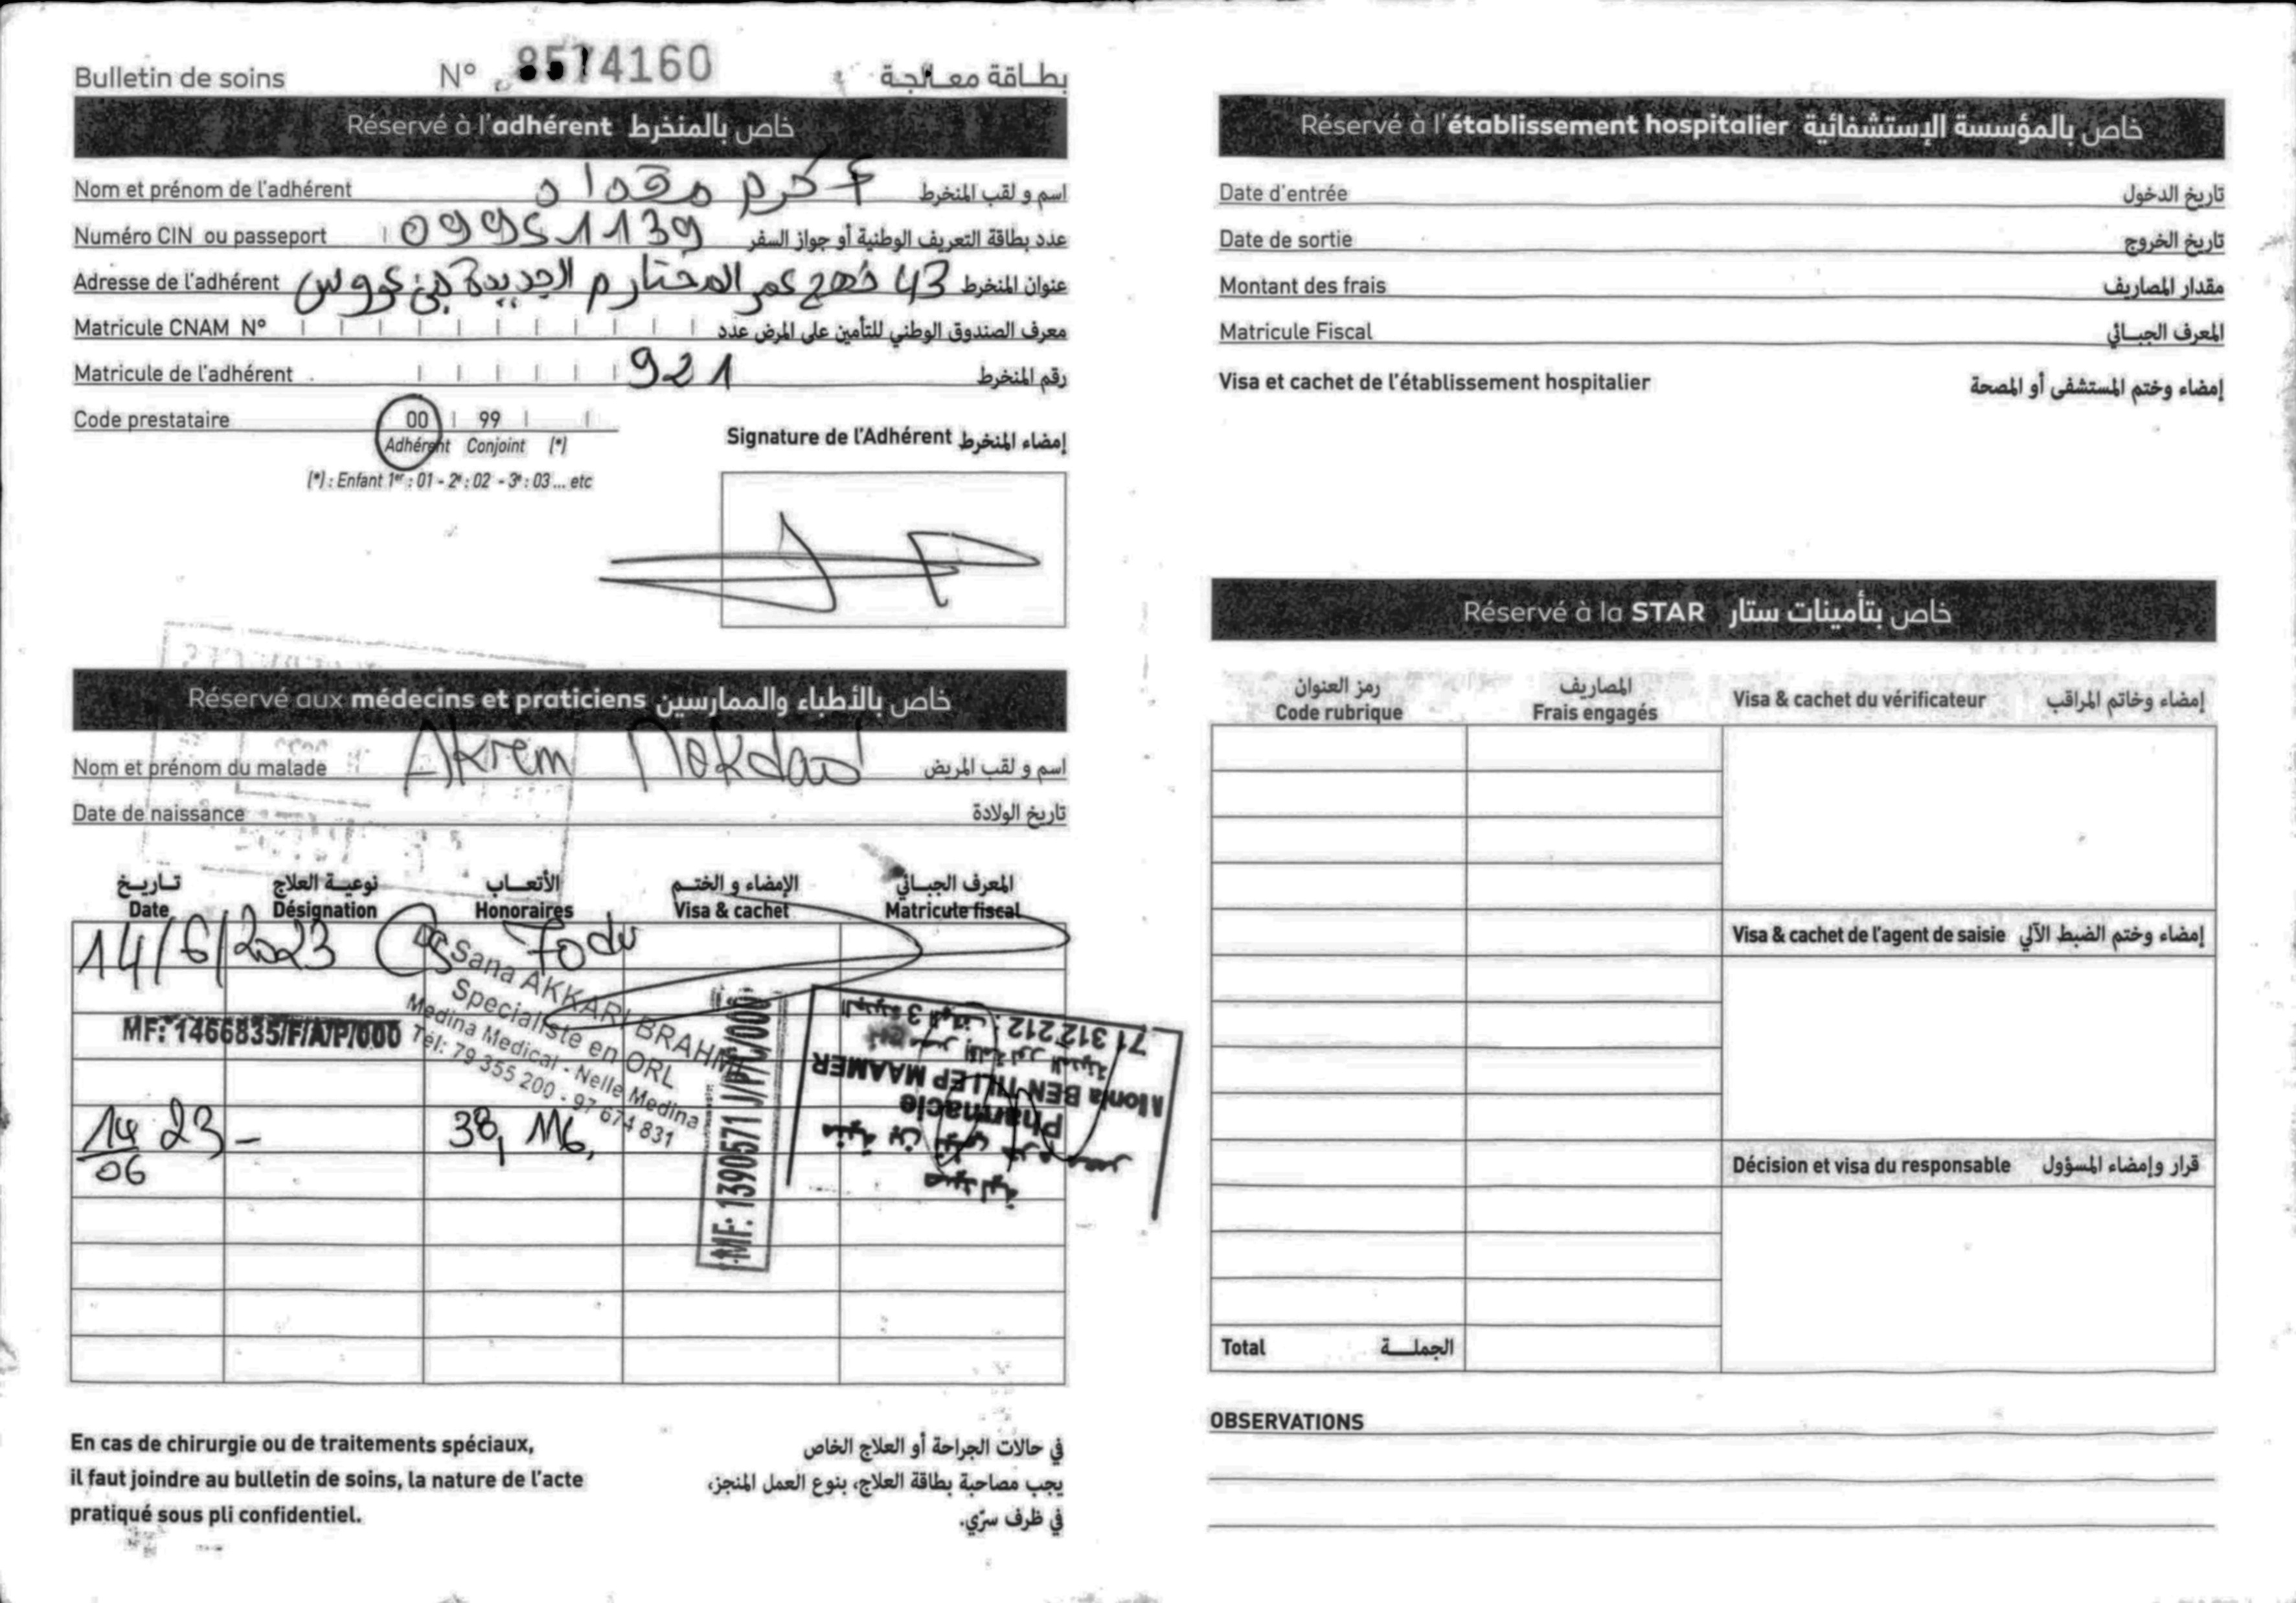 Bulletin de soins N° 8574160 بطاقة معالجة
Réservé à l'adhérent خاص بالمنخرط
Nom et prénom de l'adhérent أكرم مقداد اسم و لقب المنخرط
Numéro CIN ou passeport 09951139 عدد بطاقة التعريف الوطنية أو جواز السفر
Adresse de l'adhérent 43 نهج عمر المختار م الجديدة بن عروس عنوان المنخرط
Matricule CNAM N° معرف الصندوق الوطني للتأمين على المرض عدد
Matricule de l'adhérent 921 رقم المنخرط
Code prestataire 00 99
Adhérent Conjoint (*)
(*) : Enfant 1er : 01 - 2e : 02 - 3e : 03 ... etc
Signature de l'Adhérent إمضاء المنخرط
Réservé aux médecins et praticiens خاص بالأطباء والممارسين
Nom et prénom du malade Akrem Mokdad اسم و لقب المريض
Date de naissance تاريخ الولادة
تاريخ نوعية العلاج الأتعاب الإمضاء و الختم المعرف الجبائي
Date Désignation Honoraires Visa & cachet Matricule fiscal
14/6/2023 Cs 70 dt
Sana AKKARI BRAHMI
Specialiste en ORL
Medina Medical - Nelle Medina
Tél: 79 355 200 - 97 674 831
MF: 1466835/F/A/P/000
14/06 23 - 38,
MF: 1390571 J/P/C/000
Pharmacie
Monia BEN TILLEP MAAMER
71 312 212
En cas de chirurgie ou de traitements spéciaux,
il faut joindre au bulletin de soins, la nature de l'acte
pratiqué sous pli confidentiel.
في حالات الجراحة أو العلاج الخاص
يجب مصاحبة بطاقة العلاج، بنوع العمل المنجز،
في ظرف سرّي.
Réservé à l'établissement hospitalier خاص بالمؤسسة الإستشفائية
Date d'entrée تاريخ الدخول
Date de sortie تاريخ الخروج
Montant des frais مقدار المصاريف
Matricule Fiscal المعرف الجبائي
Visa et cachet de l'établissement hospitalier إمضاء وختم المستشفى أو المصحة
Réservé à la STAR خاص بتأمينات ستار
رمز العنوان المصاريف
Code rubrique Frais engagés Visa & cachet du vérificateur إمضاء وخاتم المراقب
Visa & cachet de l'agent de saisie إمضاء وختم الضبط الآلي
Décision et visa du responsable قرار وإمضاء المسؤول
Total الجملة
OBSERVATIONS